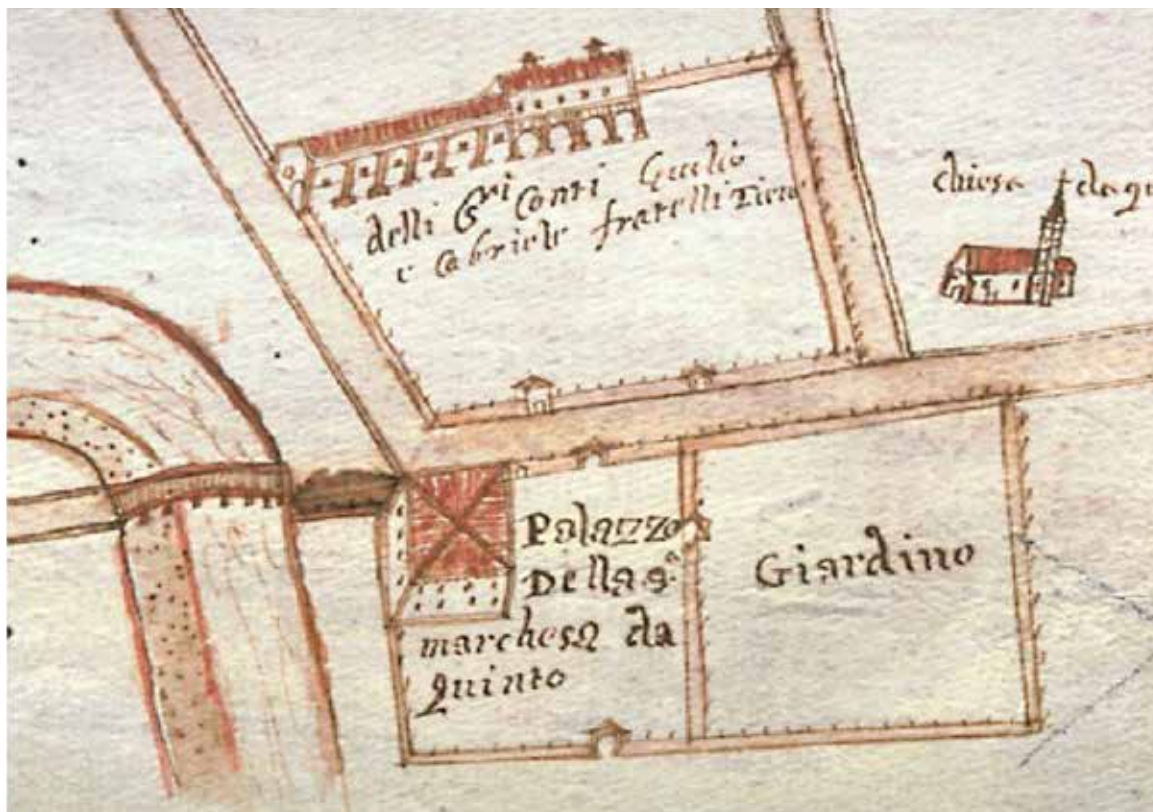 delli Gri Conti Giulio
e Gabriele fratelli Tiene
chiesa
Palazzo
Della Sra
marchesa da
Quinto
Giardino